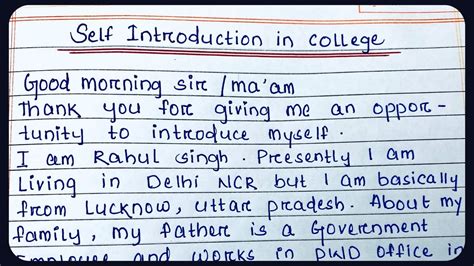 Self Introduction in college
Good morning sir / ma'am
Thank you for giving me an oppor-
tunity to introduce myself.
I am Rahul Singh. Presently I am
Living in Delhi NCR but I am basically
from Lucknow, uttar pradesh. About my
family, my father is a Government
Employee and works in PWD office in